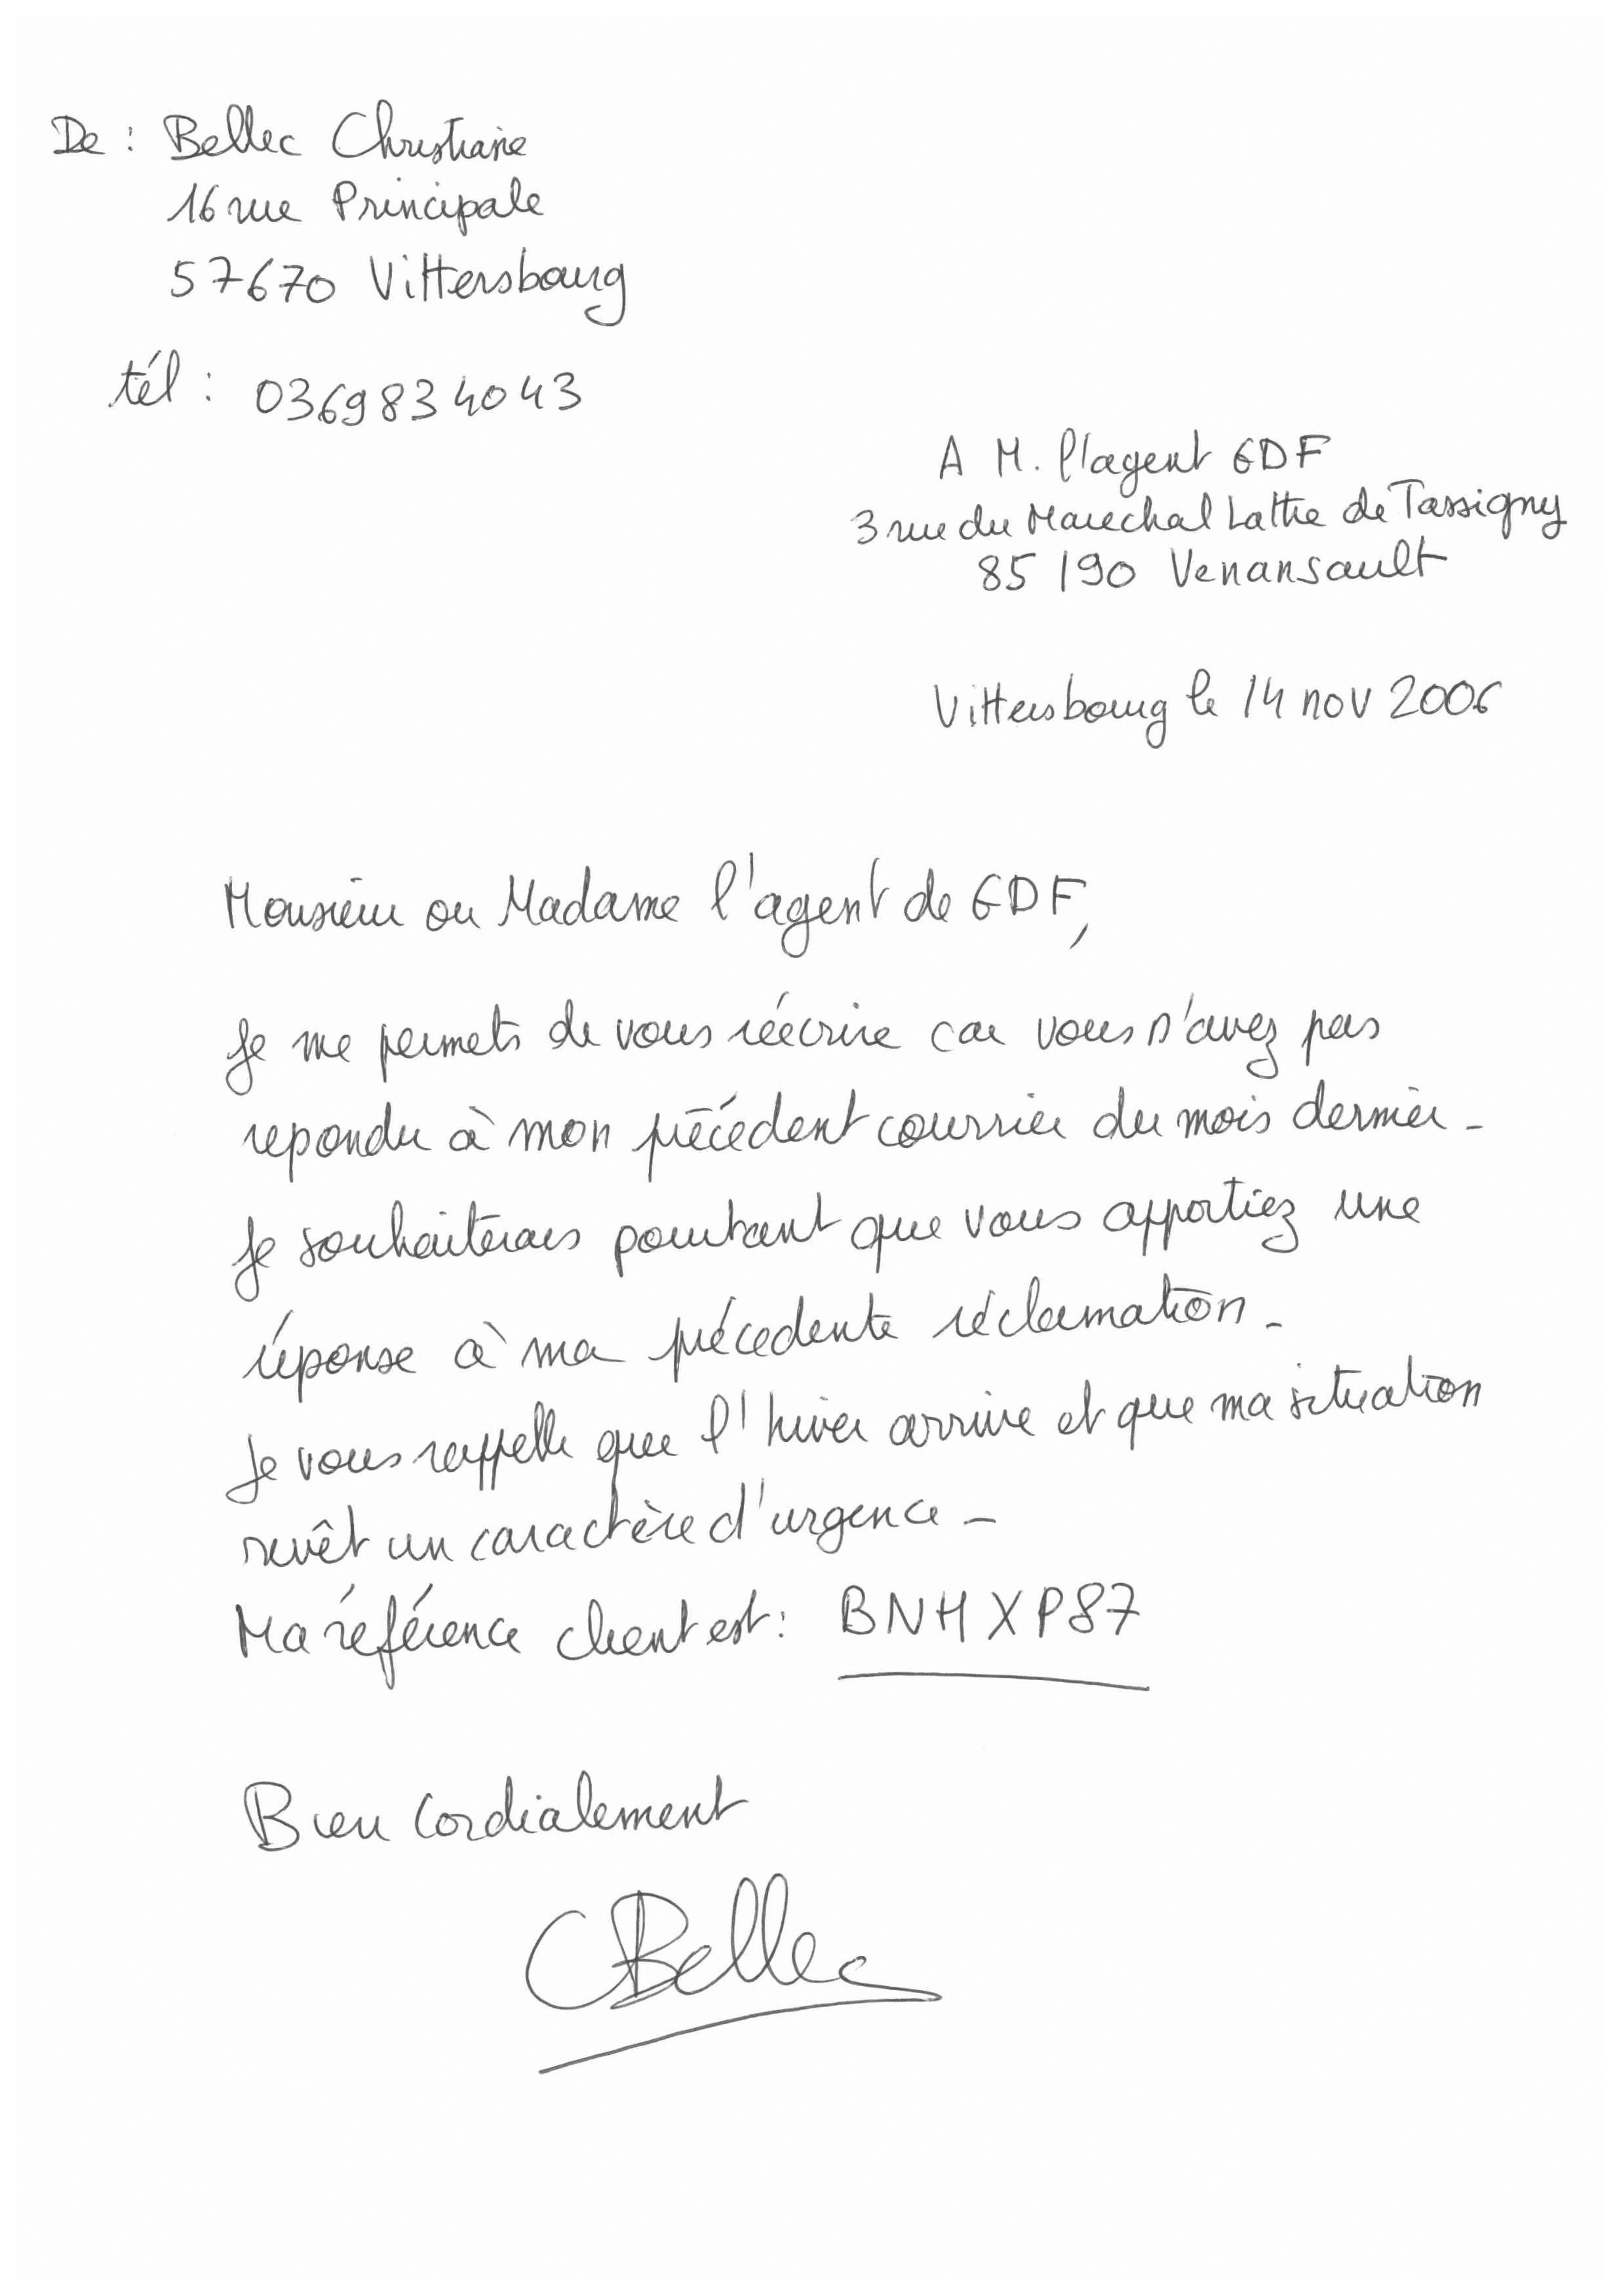 De : Bellec Christiane
16 rue Principale
57670 Vittersbourg
tél : 0369834043
A M. l'agent GDF
3 rue du Marechal Lattre de Tassigny
85190 Venansault
Vittersbourg le 14 nov 2006
Monsieur ou Madame l'agent de GDF,
Je me permets de vous réécrire car vous n'avez pas
repondu à mon précédent courrier du mois dernier -
Je souhaiterais pourtant que vous apportiez une
réponse à ma précedente réclamation -
Je vous rappelle que l'hiver arrive et que ma situation
revêt un caractère d'urgence -
Ma référence client est : BNHXP87
Bien Cordialement
CBellec